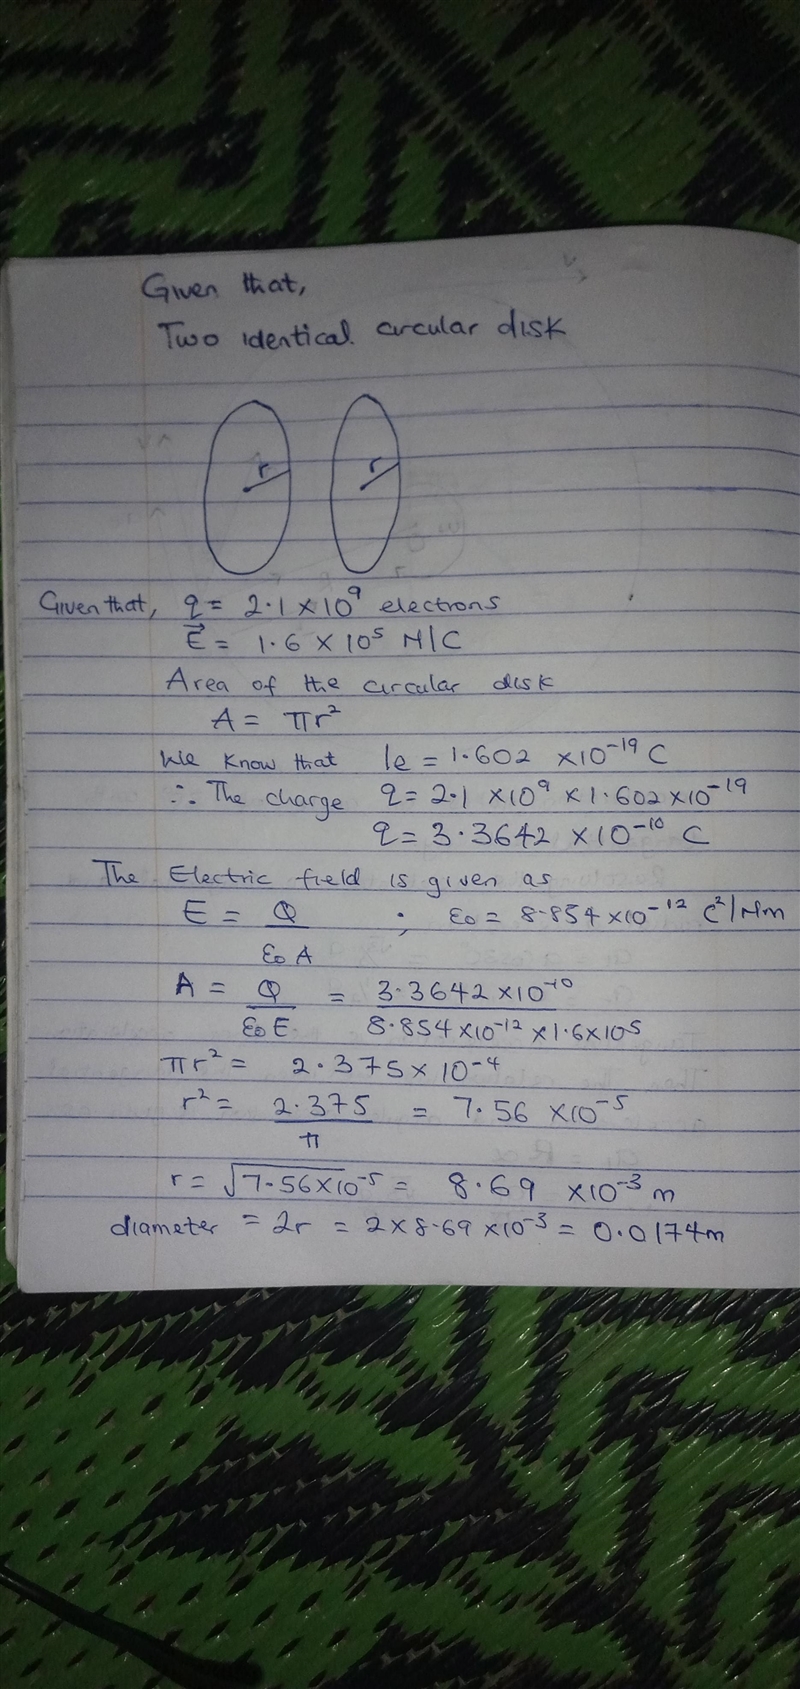 Given that,
Two identical circular disk
r r
Given that, q = 2.1 × 10⁹ electrons
E⃗ = 1.6 × 10⁵ N/C
Area of the circular disk
A = πr²
We know that 1e = 1.602 × 10⁻¹⁹ C
∴ The charge q = 2.1 × 10⁹ × 1.602 × 10⁻¹⁹
q = 3.3642 × 10⁻¹⁰ C
The Electric field is given as
E = Q / ε₀A ; ε₀ = 8.854 × 10⁻¹² C²/Nm
A = Q / ε₀E = 3.3642 × 10⁻¹⁰ / 8.854 × 10⁻¹² × 1.6 × 10⁵
πr² = 2.375 × 10⁻⁴
r² = 2.375 / π = 7.56 × 10⁻⁵
r = √7.56 × 10⁻⁵ = 8.69 × 10⁻³ m
diameter = 2r = 2 × 8.69 × 10⁻³ = 0.0174m